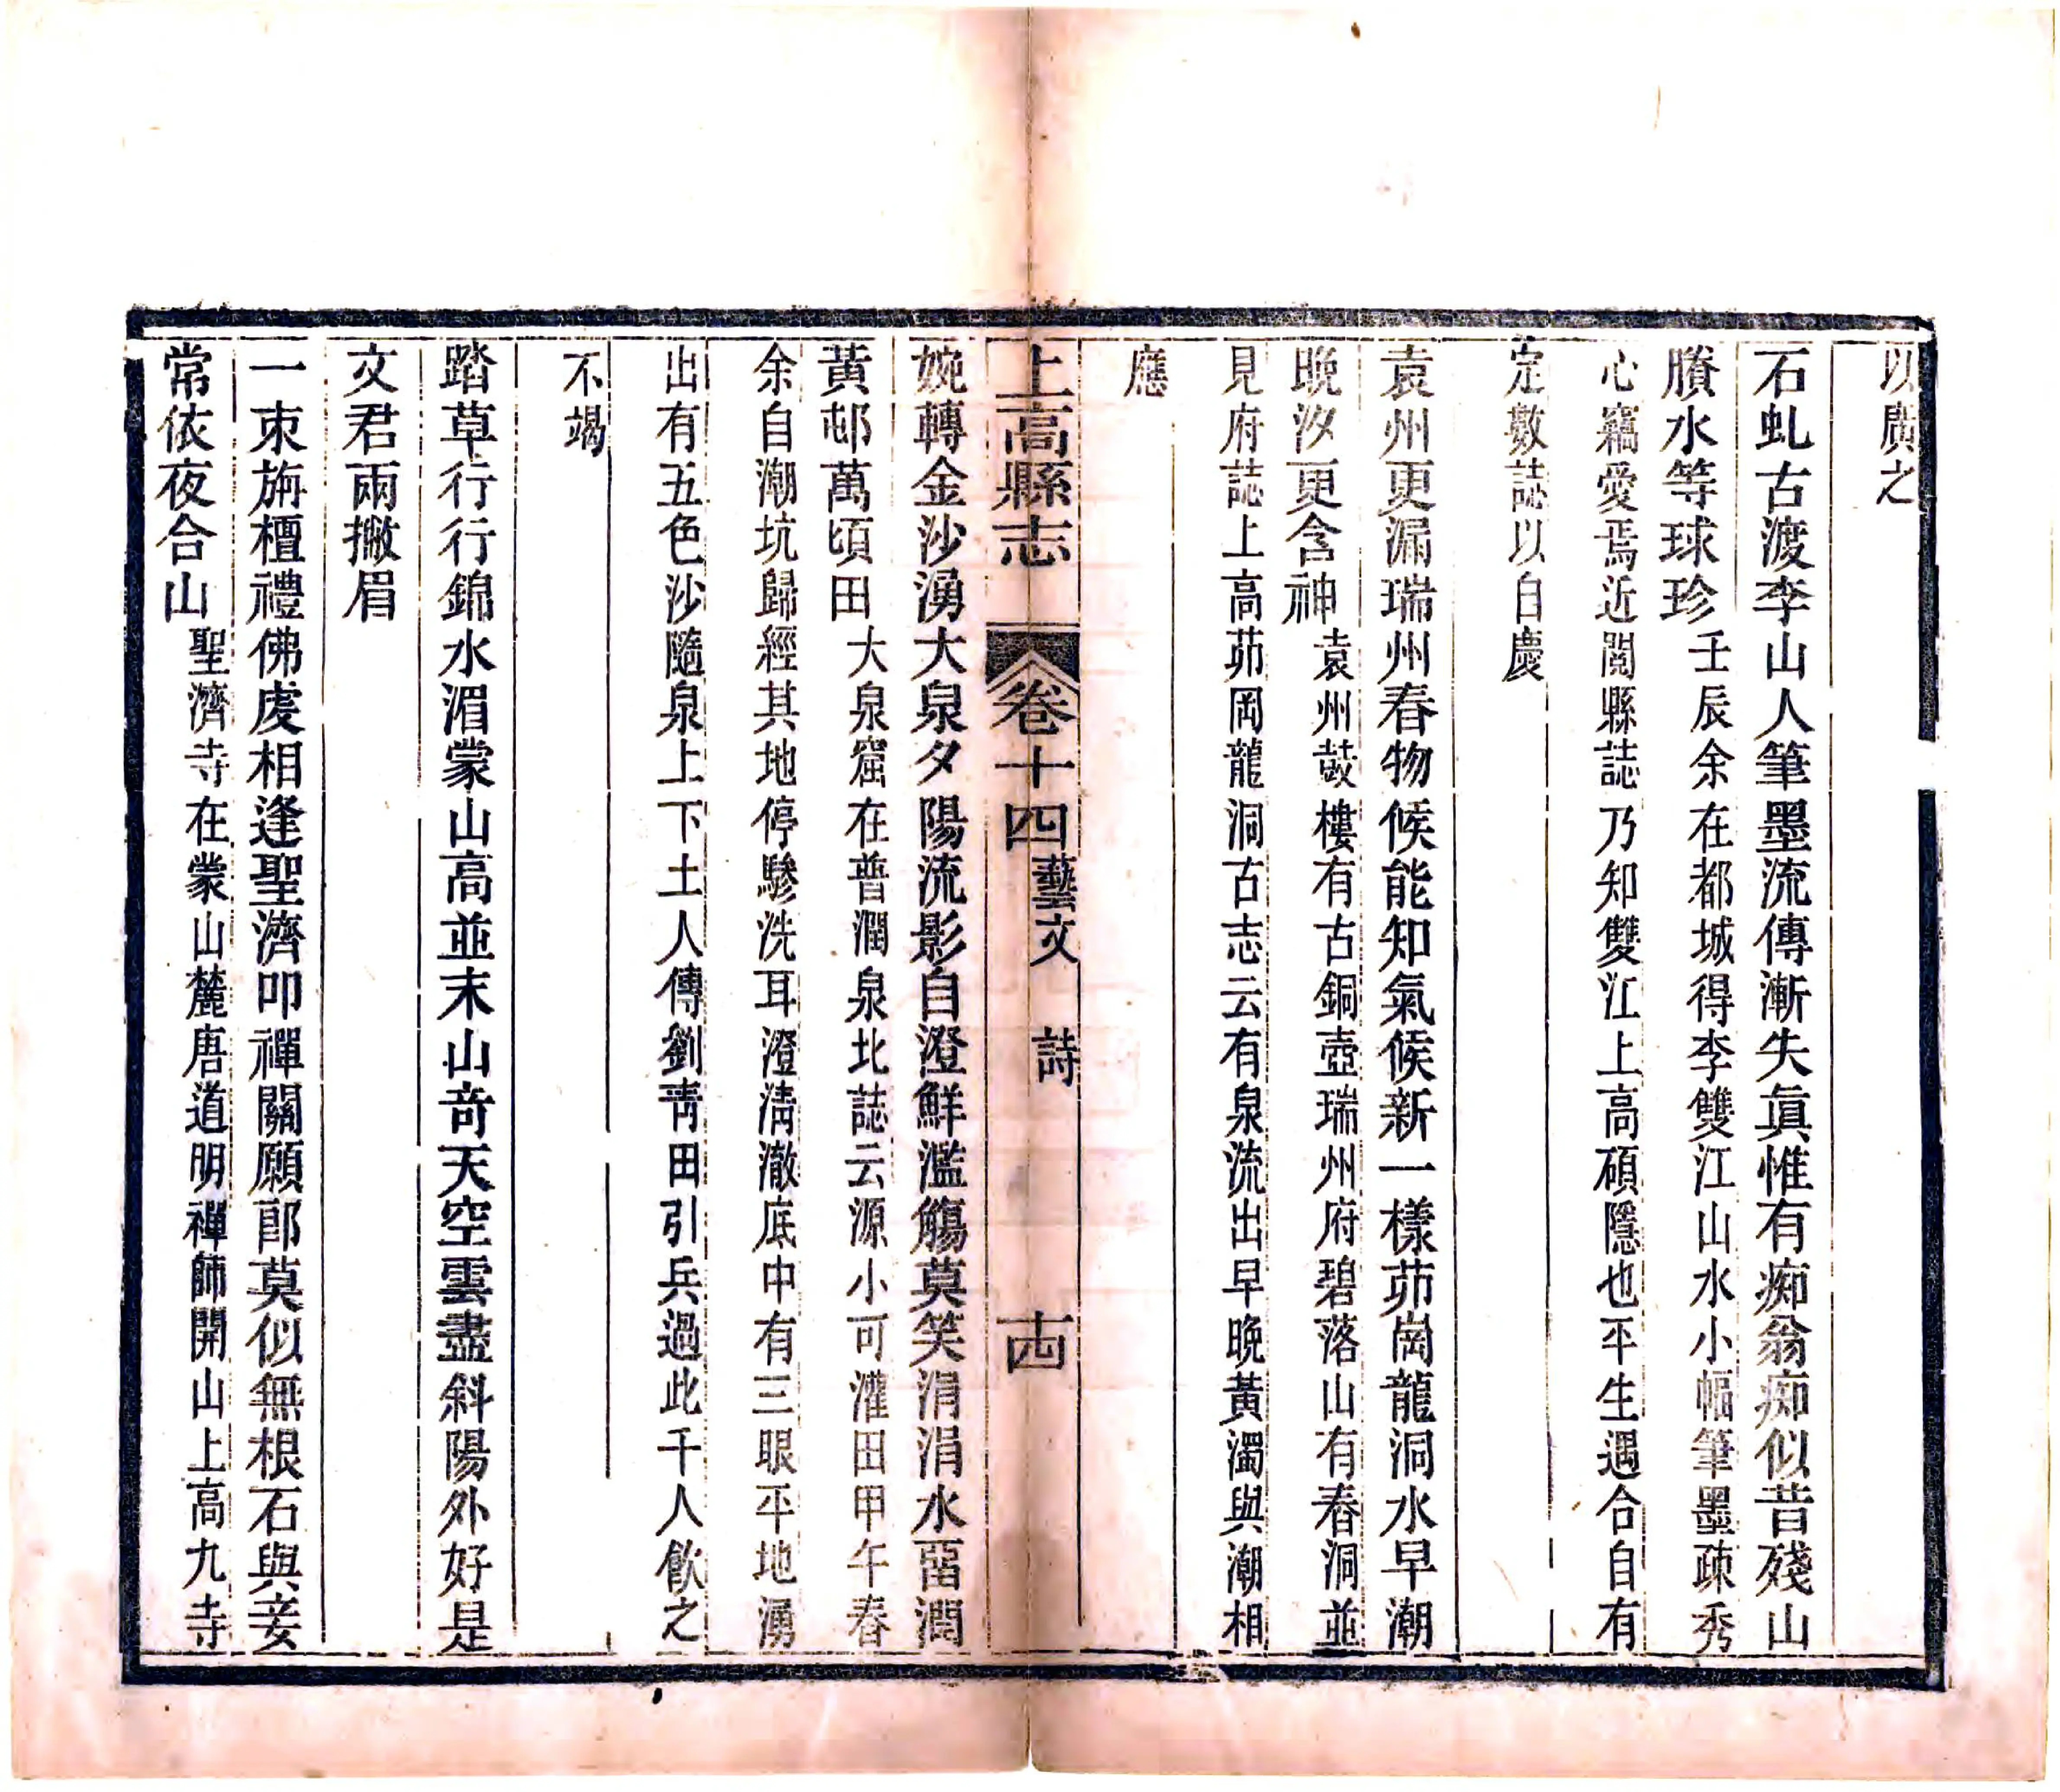 以廣之
石虬古渡李山人筆墨流傳漸失眞惟有痴翁痴似昔殘山
賸水等球珍壬辰余在都城得李雙江山水小幅筆墨疎秀
心竊愛焉近閱縣誌乃知雙江上高碩隱也平生遇合自有
定數誌以自慶
袁州更漏瑞州春物候能知氣候新一樣茆崗龍洞水早潮
晚汐更含神袁州鼓樓有古銅壺瑞州府碧落山有春洞並
見府誌上高茆岡龍洞古志云有泉流出早晚黃濁與潮相
應
上高縣志
卷十四藝文 詩 十四
婉轉金沙湧大泉夕陽流影自澄鮮濫觴莫笑涓涓水畱潤
黃邨萬頃田大泉窟在普潤泉北誌云源小可灌田甲午春
余自潮坑歸經其地停驂洗耳澄淸澈底中有三眼平地湧
出有五色沙隨泉上下土人傳劉靑田引兵過此千人飮之
不竭
踏草行行錦水湄蒙山高並末山奇天空雲盡斜陽外好是
文君兩撇眉
一束旃檀禮佛虔相逢聖濟叩禪關願郎莫似無根石與妾
常依夜合山聖濟寺在蒙山麓唐道明禪師開山上高九寺